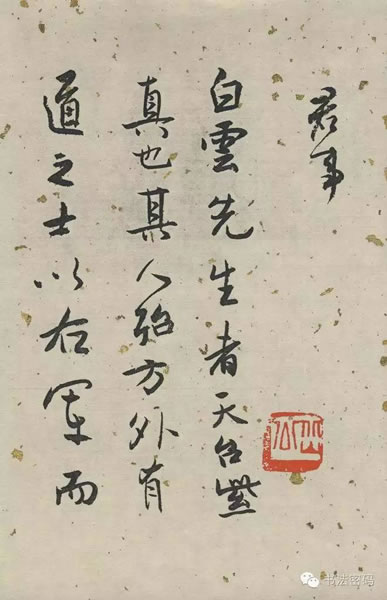 事
白雲先生者天台紫
真也其人殆方外有
道之士以右軍而
书法密码